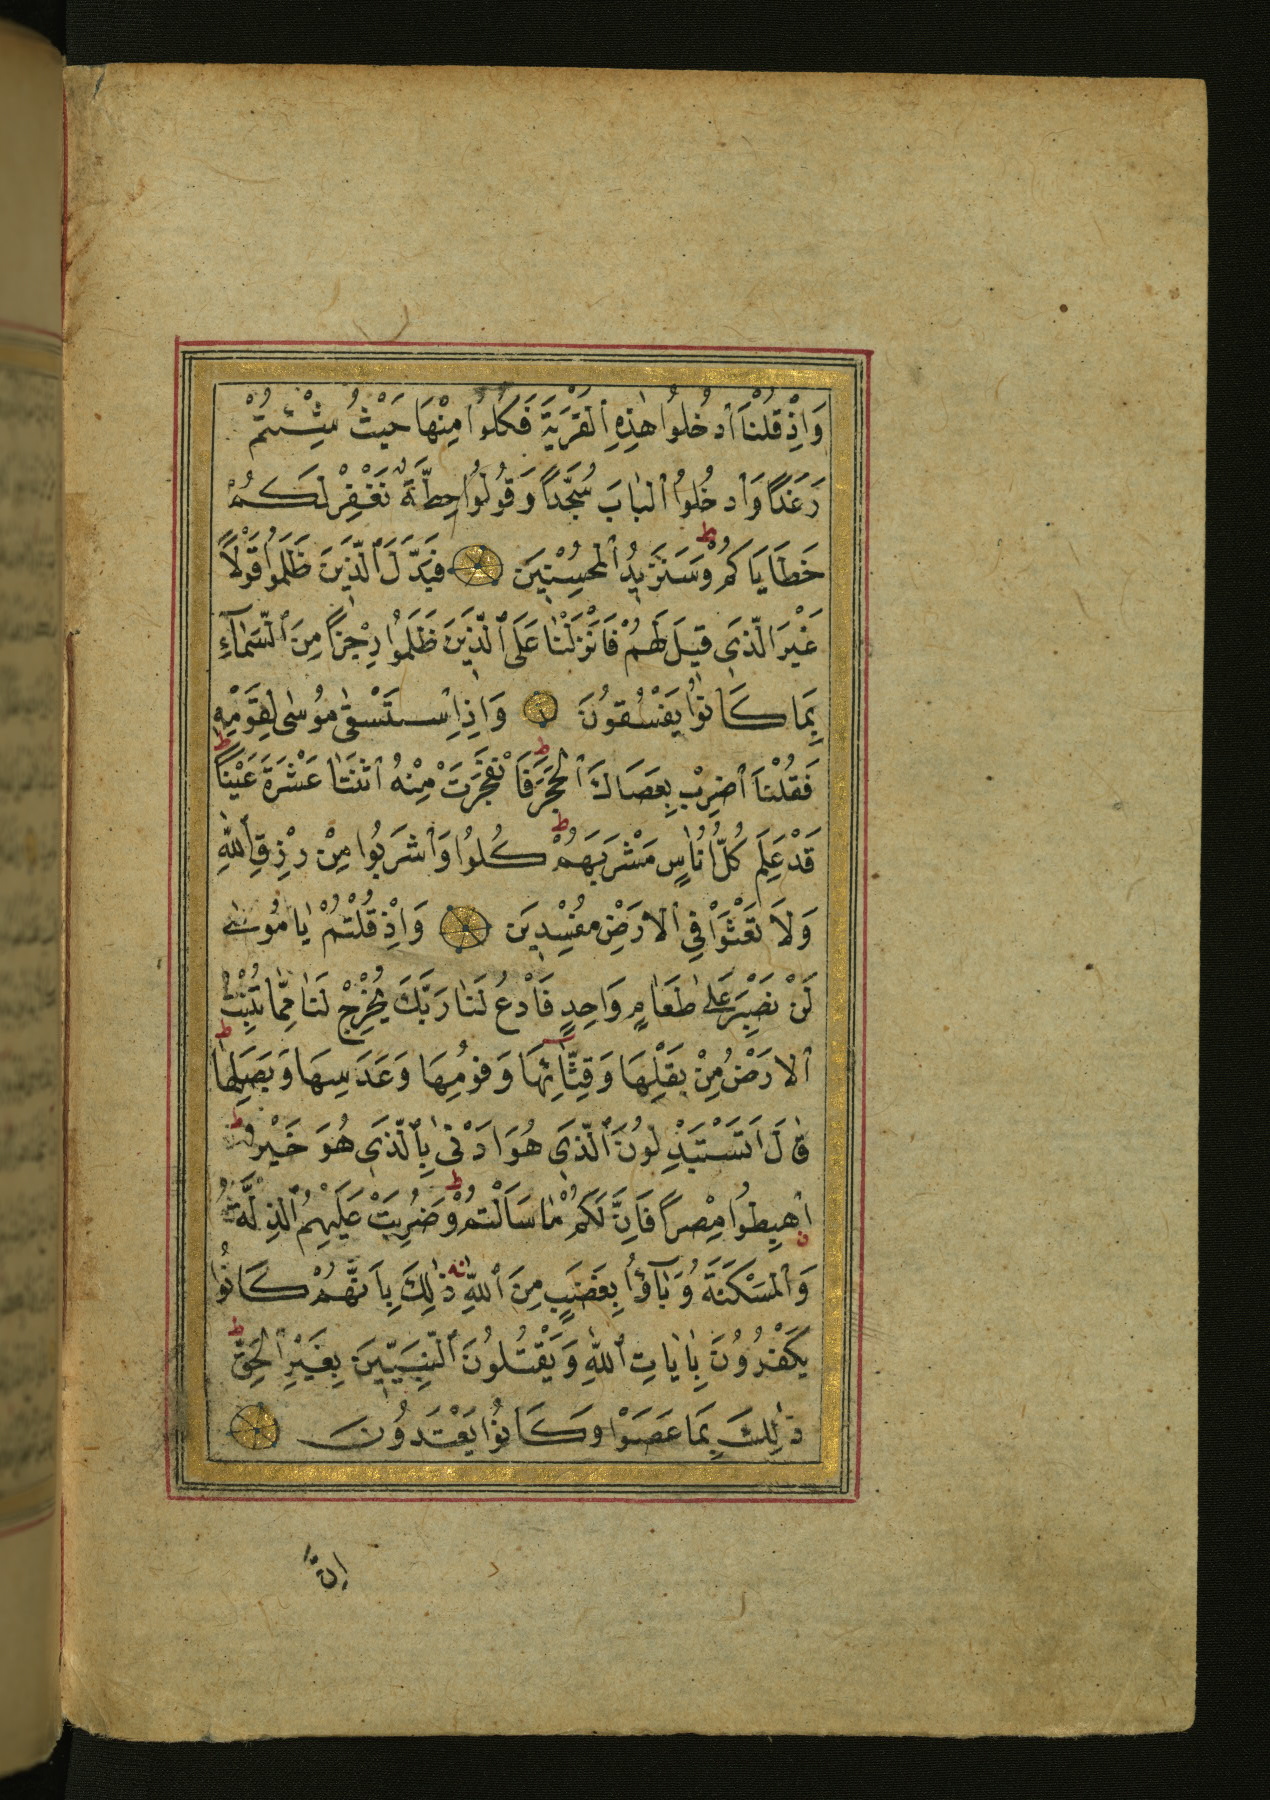 وَاِذْ قُلْنَا ٱدْخُلُوا هٰذِهِ ٱلْقَرْيَةَ فَكُلُوا مِنْهَا حَيْثُ شِئْتُمْ
رَغَدًا وَٱدْخُلُوا ٱلْبَابَ سُجَّدًا وَقُولُوا حِطَّةٌ نَغْفِرْ لَكُمْ
خَطَايَاكُمْ ط وَسَنَزِيدُ ٱلْمُحْسِنِينَ فَبَدَّلَ ٱلَّذِينَ ظَلَمُوا قَوْلًا
غَيْرَ الَّذِى قِيلَ لَهُمْ فَاَنْزَلْنَا عَلَى ٱلَّذِينَ ظَلَمُوا رِجْزًا مِنَ ٱلسَّمَآءِ
بِمَا كَانُوا يَفْسُقُونَ وَاِذِ ٱسْتَسْقٰى مُوسٰى لِقَوْمِهِ
فَقُلْنَا ٱضْرِبْ بِعَصَاكَ ٱلْحَجَرَ ط فَانْفَجَرَتْ مِنْهُ ٱثْنَتَا عَشْرَةَ عَيْنًا ط
قَدْ عَلِمَ كُلُّ اُنَاسٍ مَشْرَبَهُمْ ط كُلُوا وَٱشْرَبُوا مِنْ رِزْقِ ٱللّٰهِ
وَلَا تَعْثَوْا فِى ٱلْاَرْضِ مُفْسِدِينَ وَاِذْ قُلْتُمْ يَا مُوسٰى
لَنْ نَصْبِرَ عَلٰى طَعَامٍ وَاحِدٍ فَادْعُ لَنَا رَبَّكَ يُخْرِجْ لَنَا مِمَّا تُنْبِتُ
ٱلْاَرْضُ مِنْ بَقْلِهَا وَقِثَّائِهَا وَفُومِهَا وَعَدَسِهَا وَبَصَلِهَا ط
قَالَ اَتَسْتَبْدِلُونَ ٱلَّذِى هُوَ اَدْنٰى بِٱلَّذِى هُوَ خَيْرٌ ط
اِهْبِطُوا مِصْرًا فَاِنَّ لَكُمْ مَا سَاَلْتُمْ ط وَضُرِبَتْ عَلَيْهِمُ ٱلذِّلَّةُ
وَٱلْمَسْكَنَةُ وَبَآؤُ بِغَضَبٍ مِنَ ٱللّٰهِ ذٰلِكَ بِاَنَّهُمْ كَانُوا
يَكْفُرُونَ بِاٰيَاتِ ٱللّٰهِ وَيَقْتُلُونَ ٱلنَّبِيِّينَ بِغَيْرِ ٱلْحَقِّ ط
ذٰلِكَ بِمَا عَصَوْا وَكَانُوا يَعْتَدُونَ
اِنَّ